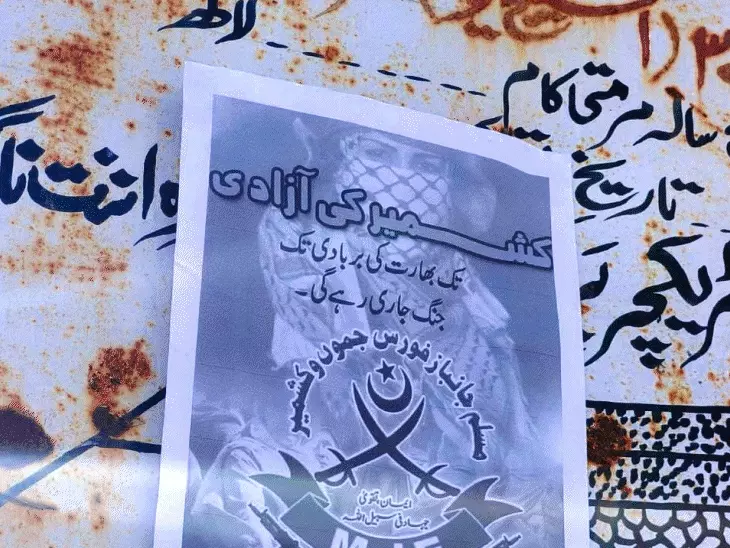 لاکھ
سالہ مرمتی کام
تاریخ
اننت ناگ
کشمیر کی آزادی
تک بھارت کی بربادی تک
جنگ جاری رہے گی۔
مسلم جانباز فورس جموں و کشمیر
ایمان تقویٰ
جہاد فی سبیل اللہ
MJF